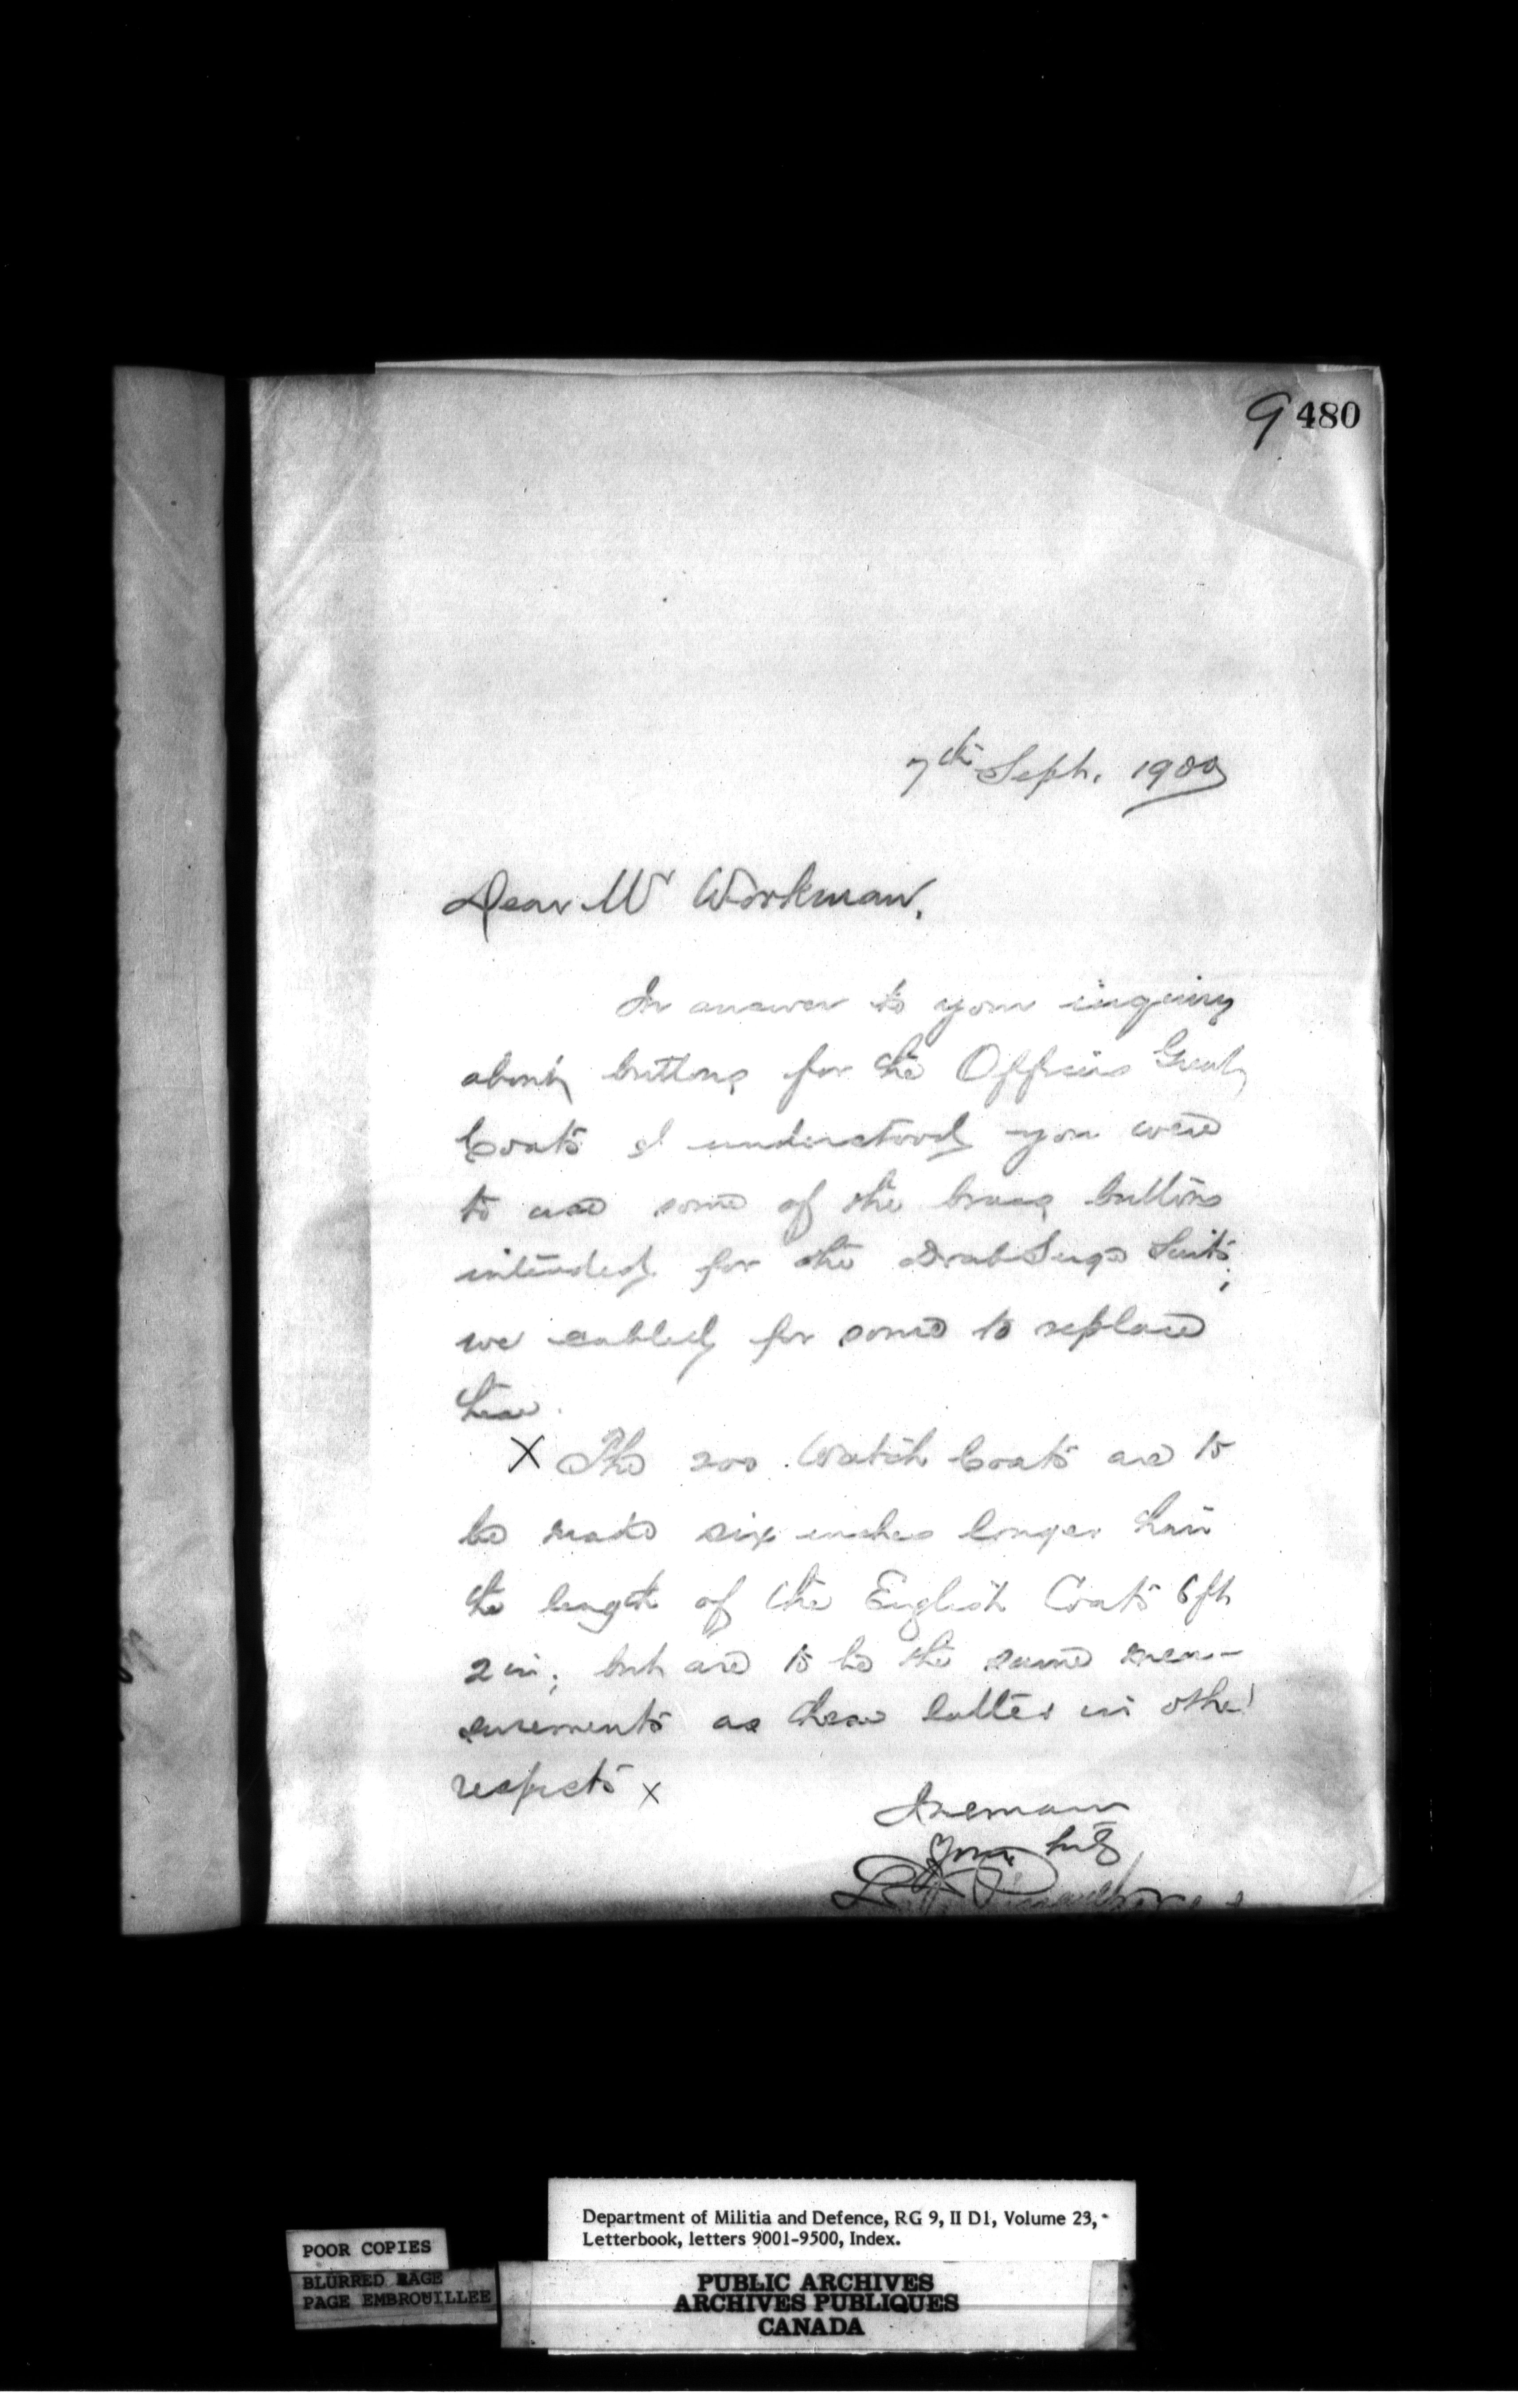 9480
7th Sept. 1900
Dear Mr Workman,
In answer to your inquiry
about buttons for the Officers Great
Coats I understood you were
to use some of the brass buttons
intended for the Drab Serge Suits;
we cabled for some to replace
these.
X The 200 Watch Coats are to
be made six inches longer than
the length of the English Coats 6 ft
2 in; but are to be the same mea-
surements as these latter in other
respects X
I remain
Yours truly
Department of Militia and Defence, RG 9, II D1, Volume 23,
Letterbook, letters 9001-9500, Index.
POOR COPIES
BLURRED PAGE
PAGE EMBROUILLEE
PUBLIC ARCHIVES
ARCHIVES PUBLIQUES
CANADA